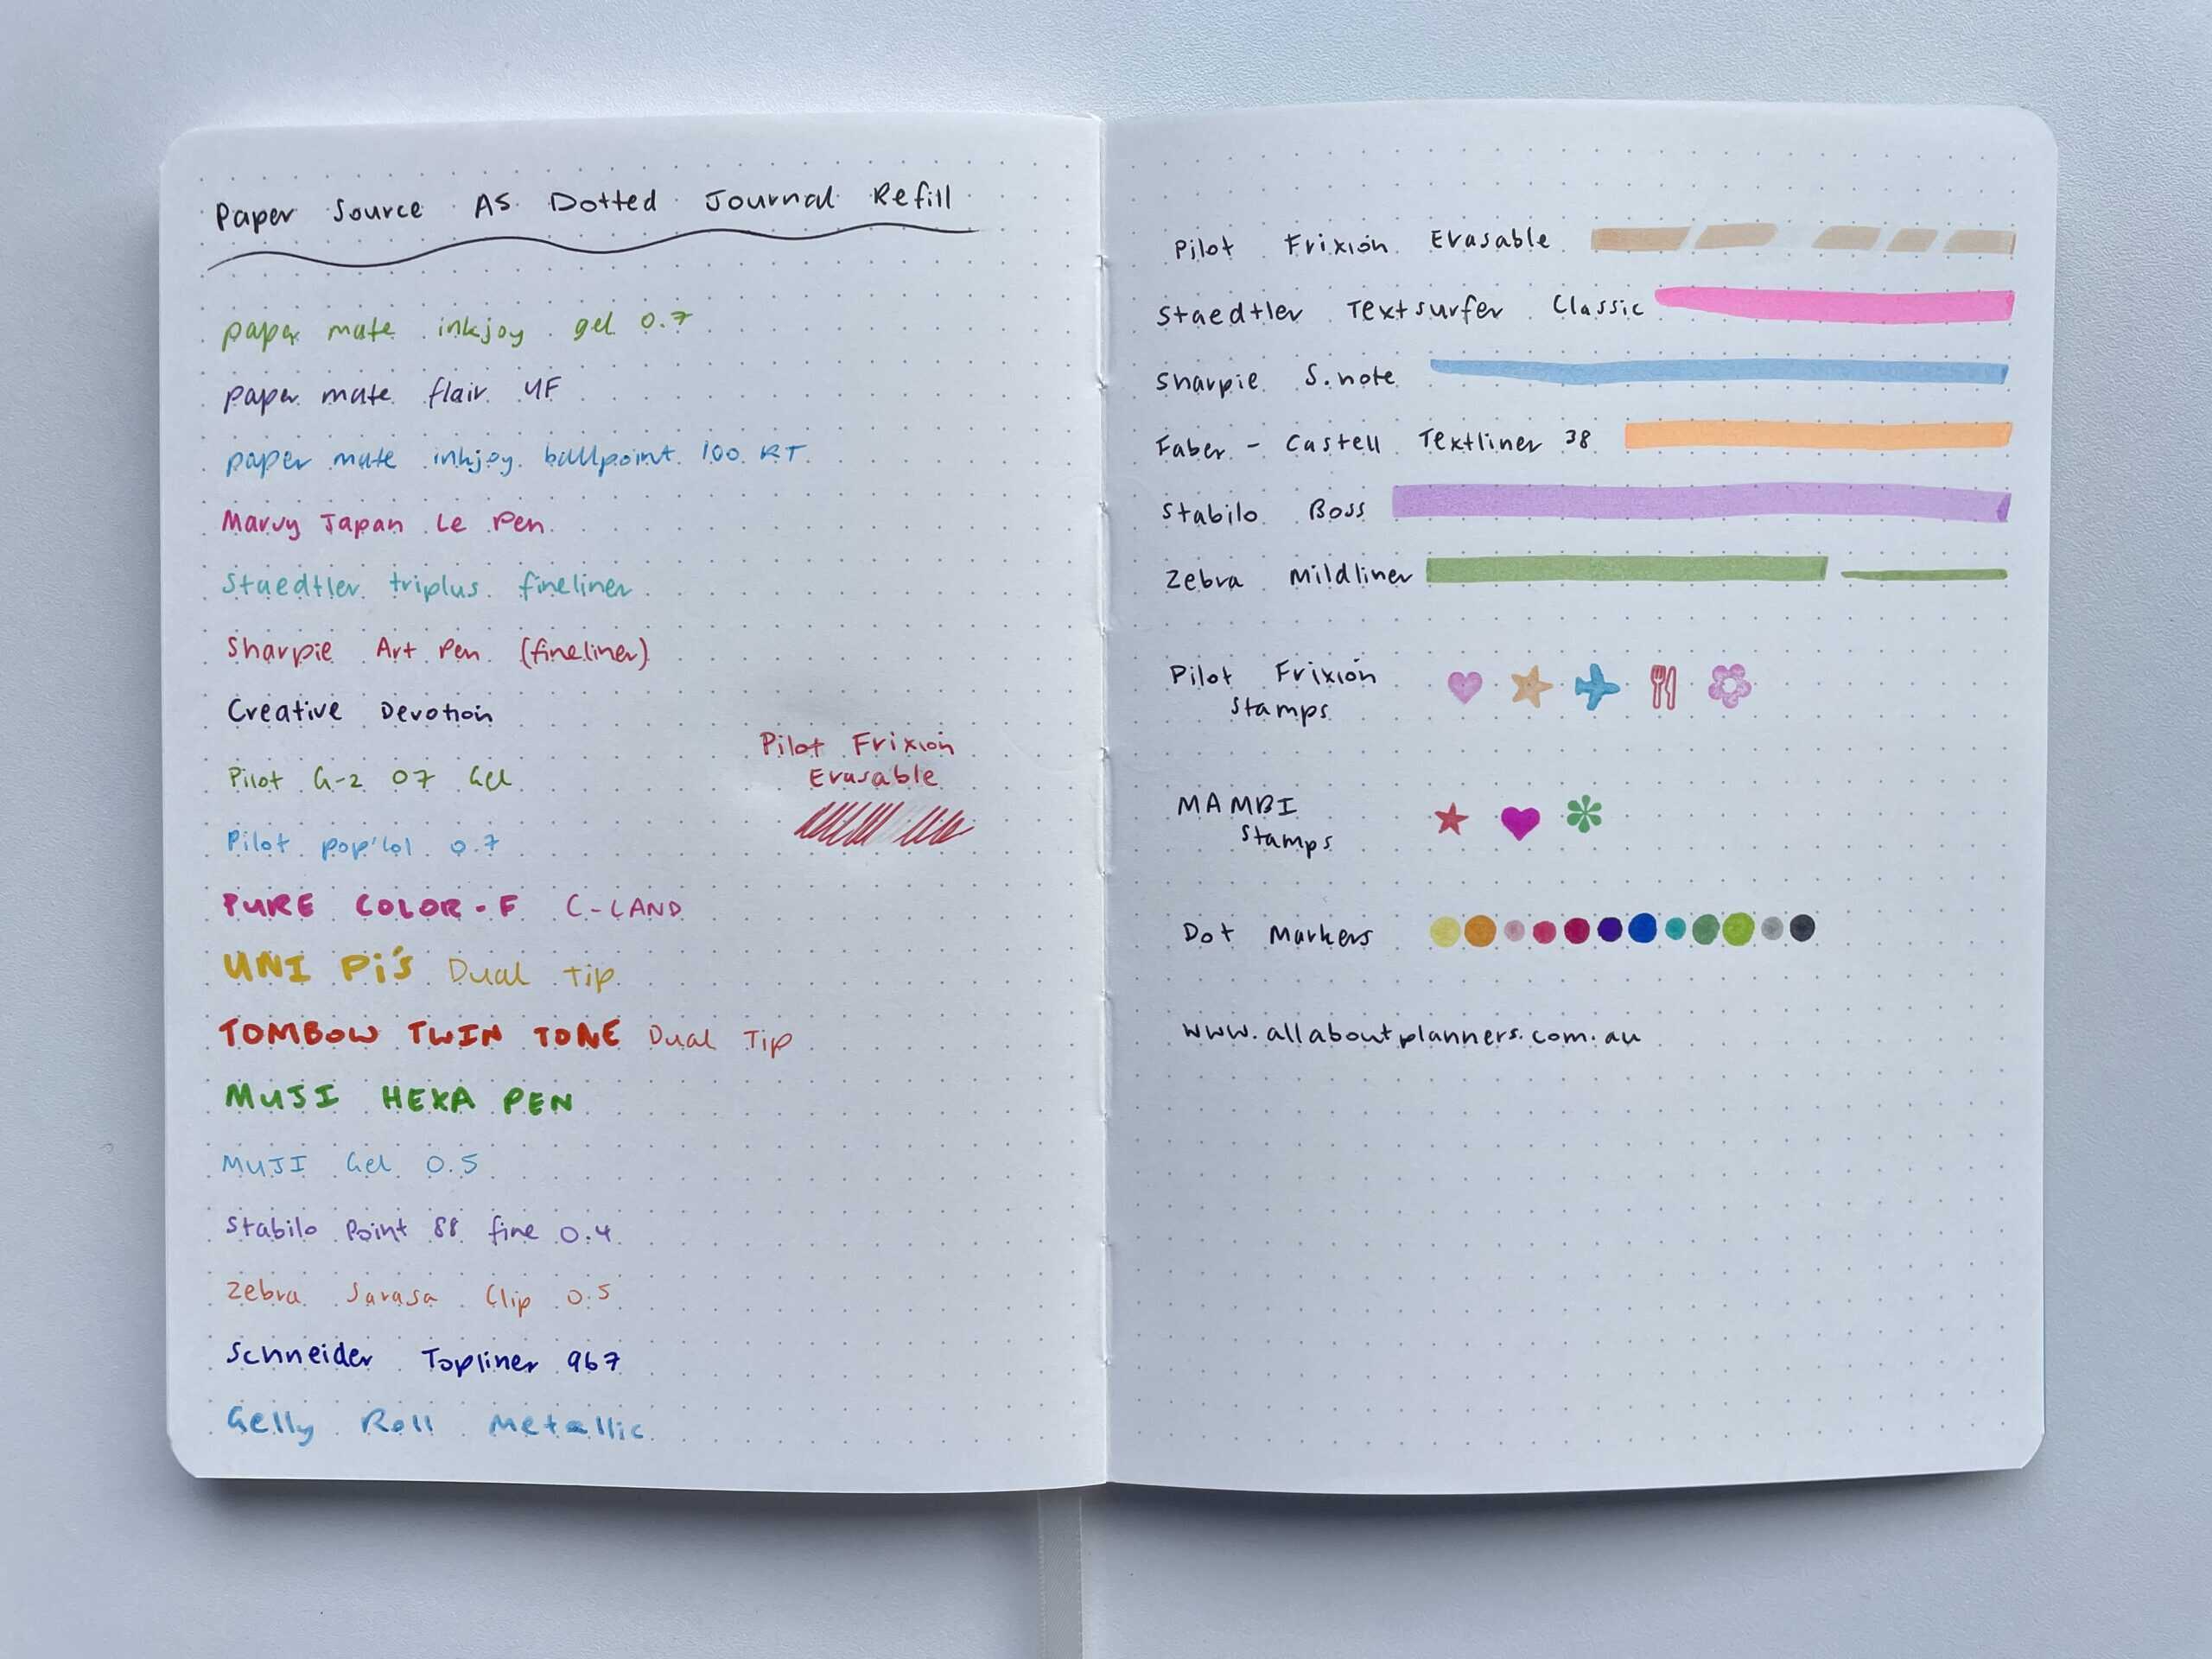 Paper Source A5 Dotted Journal Refill
paper mate inkjoy gel 0.7
paper mate flair UF
paper mate inkjoy ballpoint 100 RT
Marvy Japan Le Pen
Staedtler triplus fineliner
Sharpie Art Pen (fineliner)
Creative Devotion
Pilot G-2 07 Gel
Pilot Frixion
Erasable
Pilot pop'lol 0.7
PURE COLOR-F C-LAND
UNI Pi's Dual Tip
TOMBOW TWIN TONE Dual Tip
MUJI HEXA PEN
MUJI Gel 0.5
Stabilo Point 88 fine 0.4
Zebra Sarasa Clip 0.5
Schneider Topliner 967
Gelly Roll Metallic
Pilot Frixion Erasable
Staedtler Textsurfer Classic
Sharpie S.note
Faber-Castell Textliner 38
Stabilo Boss
Zebra Mildliner
Pilot Frixion
Stamps
MAMBI
Stamps
Dot Markers
www.allaboutplanners.com.au